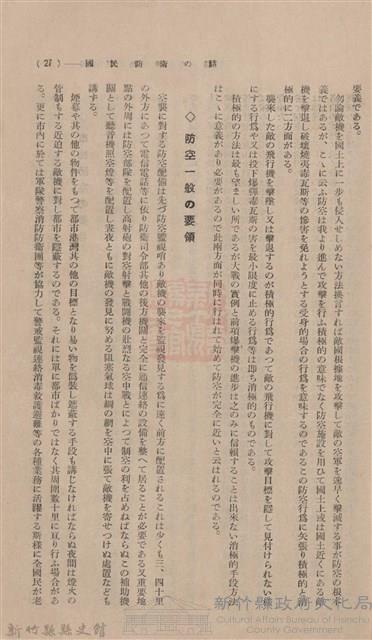 (27)——國民防衛の話
要義である。
勿論敵機を國土上に一歩も侵入せしめない方法換言すれば敵國根據地を攻撃して敵の空軍を逸早く撃滅する事が防空の根本
義ではあるが、こゝに云ふ防空は我より進んで攻撃を行ふ積極的の意味でなく防空施設を用ひて國土上或は國土近くにある敵
機を撃退し破壊燒夷毒瓦斯等の慘害を免れようとする受身的場合の行爲を意味するのであるこの防空行爲に矢張り積極的と消
極的に二方面がある。
襲來した敵の飛行機を撃墜し又は撃退するのが積極的行爲であつて敵の飛行機に對して攻撃目標を隱して見付けられない樣
にする行爲や又は投下爆彈毒瓦斯の害を最小限度に止める行爲等は即ち消極的のものである。
積極的の方法は最も望ましい所であるが大戰の實例と前項爆撃機の進歩は之のみに信頼することは出來ない消極的手段方法
はこゝに意義があり必要があるので此兩方面が同時に行はれて始めて防空が完全に近いと云はれるのである。
◇ 防空一般の要領
空襲に對する防空配備は先づ防空監視哨あり敵機の襲來を監視發見する爲に遠く前方に配置されるこれは少くも三、四十里
の外方にあつて電信電話等に依り防衛司令部其他の後方機關と完全に通信連絡の設備を整へて居ることが必要である又重要地
點の外周には防空部隊を配置し高射砲の對空射撃と戰鬪機の壯烈なる空中戰とによつて制空の利を占めねばならぬこの補助機
關として聽音機照空燈等を配置し晝夜ともに敵機の發見に努める阻塞氣球は鋼の網を空中に張て敵機を寄せつけぬ處置なども
講する。
煙幕や其の他の物件をもつて都市港灣其の他の目標となり易い物を僞裝し遮蔽する手段も講じなければならぬ夜間は燈火の
管制もする近迫する敵機に對し都市を隱蔽するのである。それには單に都市ばかりではなく其周圍數十里に亙り行ふ場合があ
る。更に市内に於ては軍隊警察消防防衛團等が協力して警戒監視連絡消毒救護避難等の各種業務に活躍する斯樣に全國民が老
新竹縣政府文化局
Cultural Affairs Bureau of Hsinchu
County Government
新竹縣縣史館